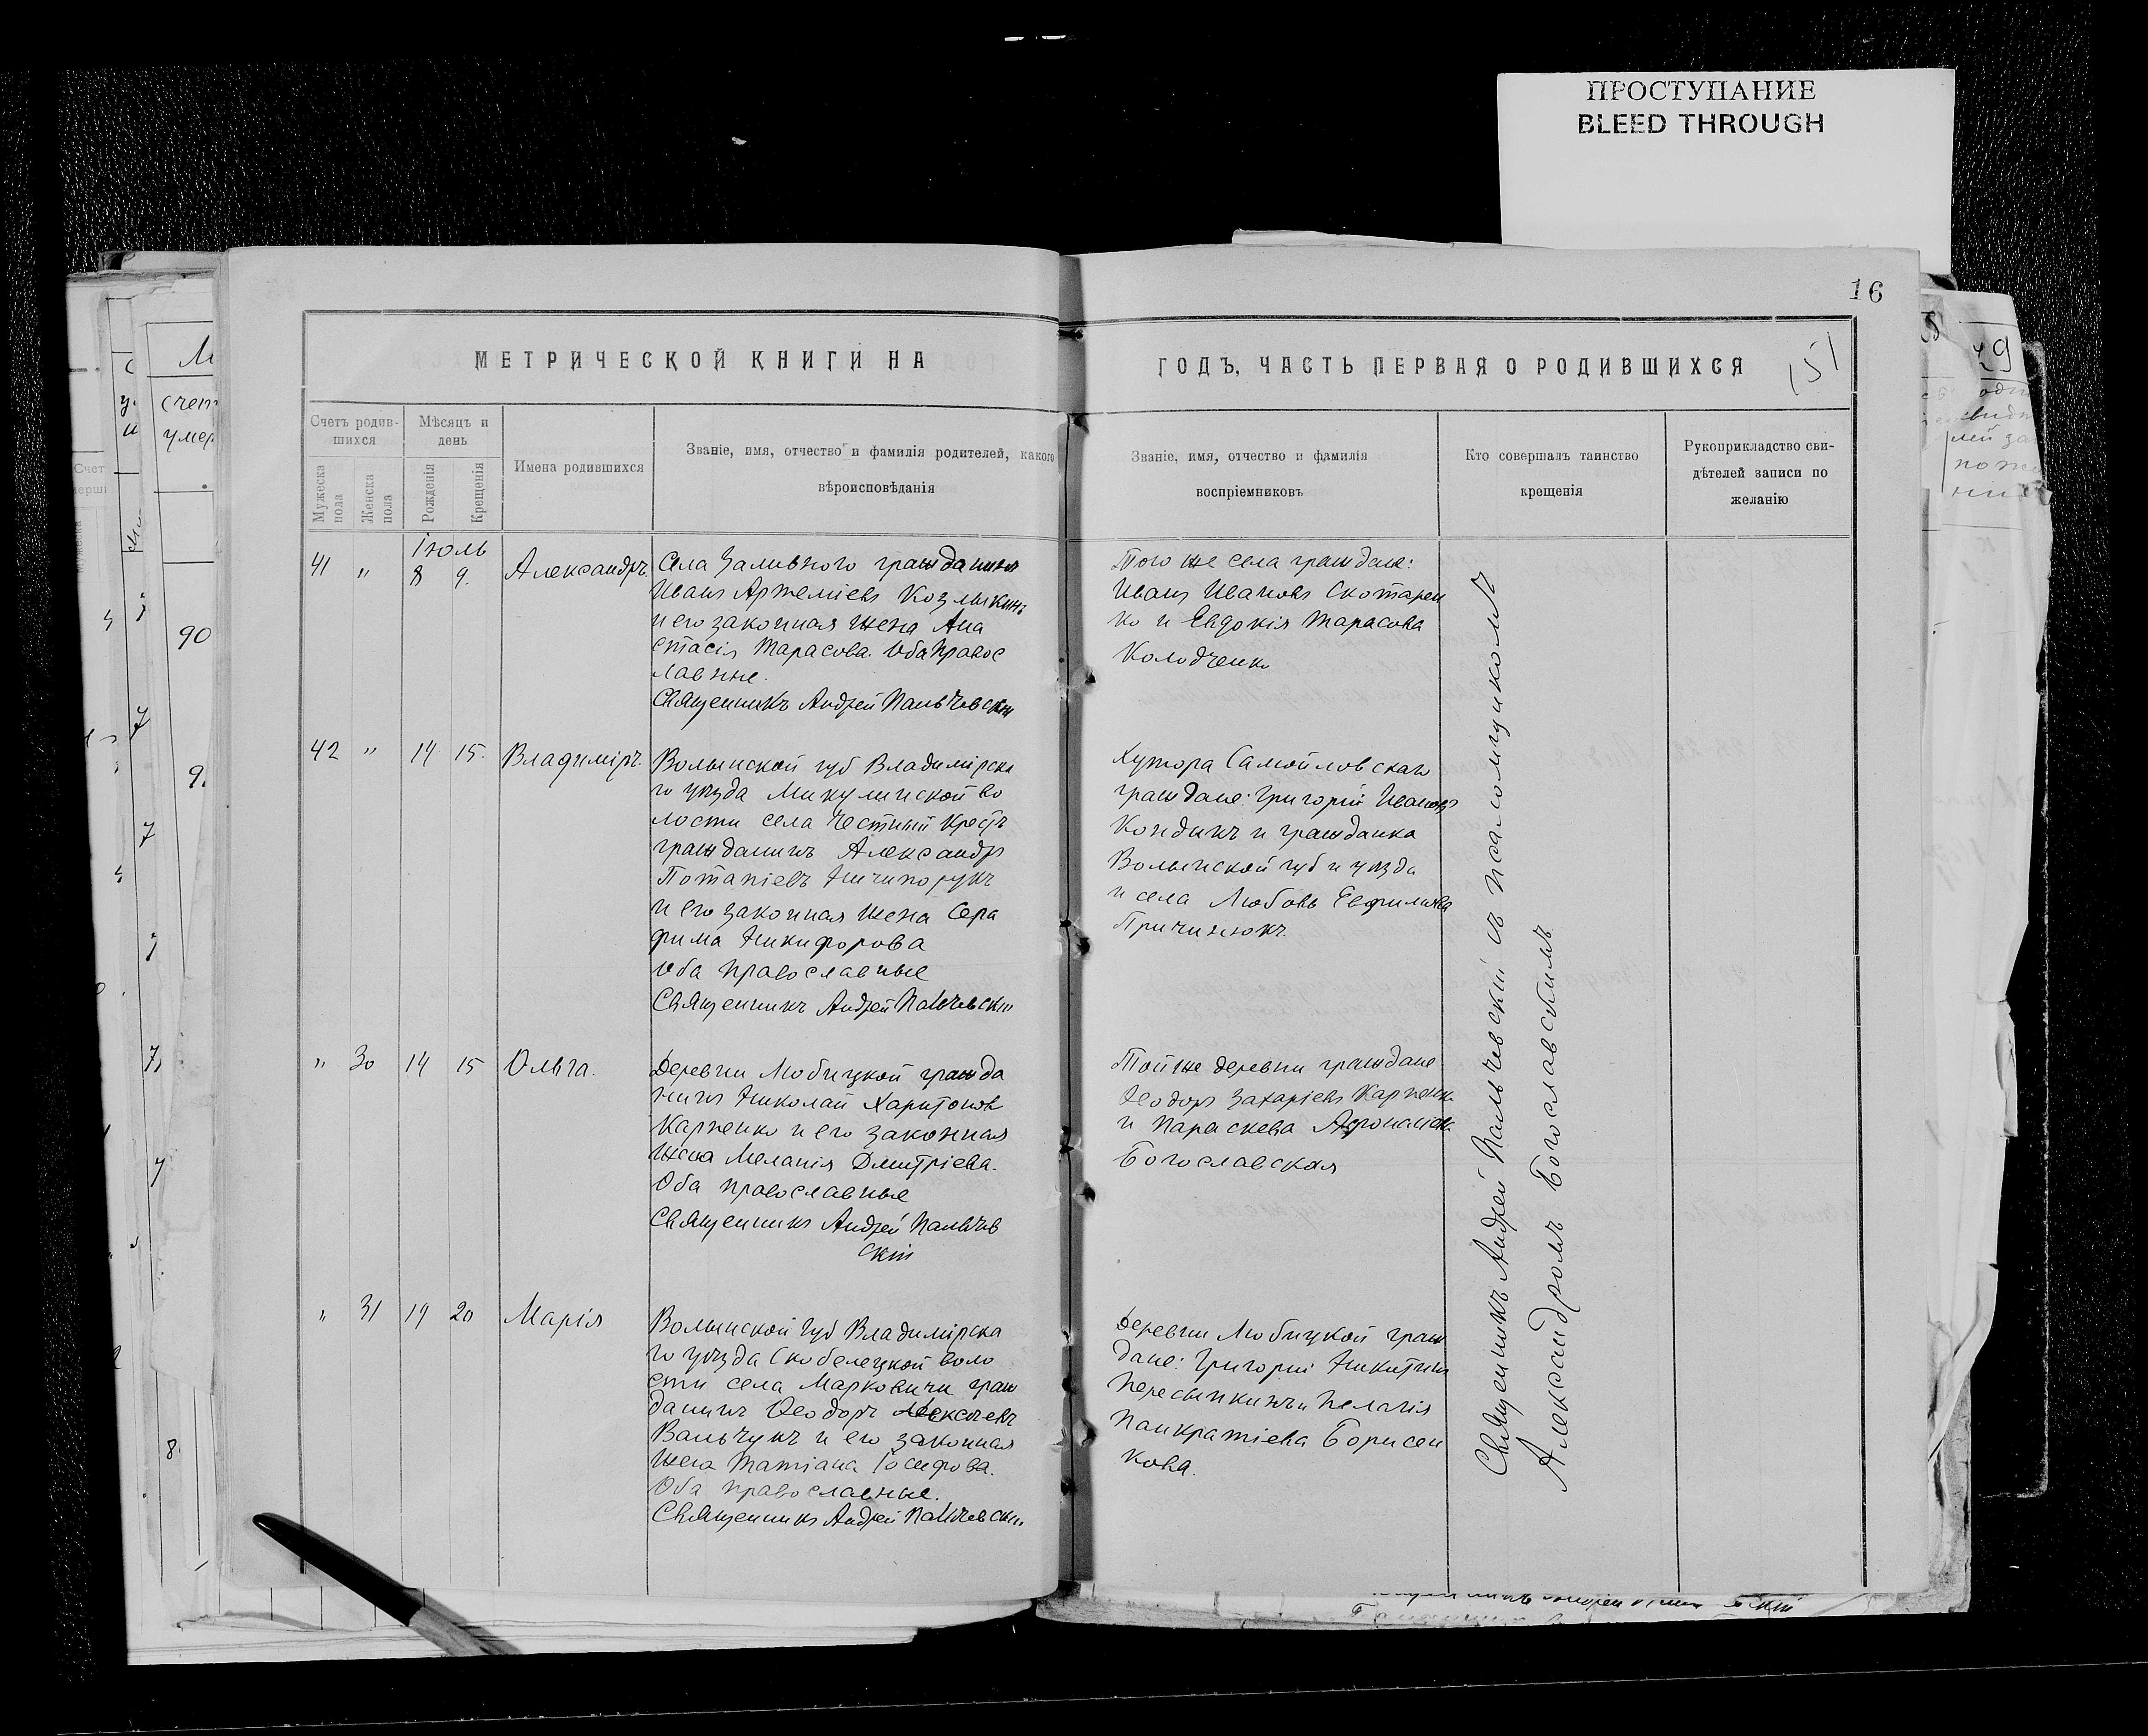 ПРОСТУПАНИЕ
BLEED THROUGH
16
151
МЕТРИЧЕСКОЙ КНИГИ НА
ГОДЪ, ЧАСТЬ ПЕРВАЯ О РОДИВШИХСЯ
Счетъ родив-
шихся
Мѣсяцъ и
день
Мужеска
пола
Женска
пола
Рожденія
Крещенія
Имена родившихся
Званіе, имя, отчество и фамилія родителей, какого
вѣроисповѣданія
Званіе, имя, отчество и фамилія
воспріемниковъ
Кто совершалъ таинство
крещенія
Рукоприкладство сви-
дѣтелей записи по
желанію
Іюль
41 " 8 9. Александръ.
Села Заливного гражданинъ
Иванъ Артеміевъ Козлыкинъ
и его законная жена Ана
стасія Тарасова. Оба правос
лавные.
Священникъ Андрей Пальчевскій
Того же села граждане:
Иванъ Ивановъ Скотарен
ко и Евдокія Тарасова
Колодченко
42 " 14 15. Владиміръ.
Волынской губ Владимірска
го уѣзда Микулинской во
лости села Честный Крестъ
гражданинъ Александръ
Потапіевъ Ничипорукъ
и его законная жена Сера
фима Никифорова
Оба православные
Священникъ Андрей Пальчевскій
Хутора Самойловскаго
граждане: Григорій Ивановъ
Кондикъ и гражданка
Волынской губ и уѣзда
и села Любовь
Причинюкъ.
" 30 14 15 Ольга.
Деревни Любицкой гражда
нинъ Николай Харитоновъ
Карпенко и его законная
жена Меланія Дмитріева.
Оба православные
Священникъ Андрей Пальчев
скій
Той же деревни граждане
Ѳеодоръ Захаріевъ Карпенко
и Параскева
Богославская
" 31 19 20 Марія
Волынской губ Владимірска
го уѣзда Скобелецкой воло
сти села Марковичи граж
данинъ Ѳеодоръ Алексѣевъ
Вальчукъ и его законная
жена Татіана Іосифова.
Оба православные.
Священникъ Андрей Пальчевскій
Деревни Любицкой граж
дане: Григорій Никитинъ
Пересыпкинъ и Пелагія
Панкратіева Борисен
кова.
Священникъ Андрей Пальчевскій съ псаломщикомъ
Александромъ Богославскимъ